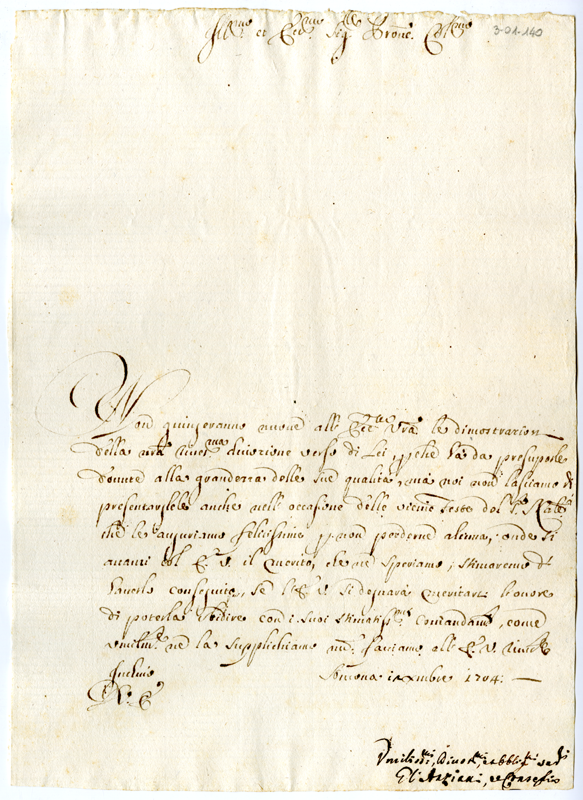 Ill.mo et Ecc.mo Sig.r
3-01-140
Non giungeranno nuove all' Ecc.za V.ra le dimostrazion
della n.ra divozione verso di Lei, che ha da presuporle
dounte alla grandezza delle sue qualità, mà noi non lasciamo di
presentarglele anche nell' occasione delle vicine feste del S. Nate
che le auguriamo felicissime p non perderne alcuna, onde si
auanzi col E. V. il merito, che ne speriamo, stimaremo d'
hauerlo conseguito, se l' E. V. si degnarà meritarci l'onore
di poterla Vbidire con i suoi stimatiss.mi Comandam.ti, come
umilm.te nè la supplichiamo, facciamo all' E. V.
Inchino
Xmbre 1704
D. V. E.
Vmiliss.i, Diuot.i, et obblig.i
Gl'Anziani, e Conseglio